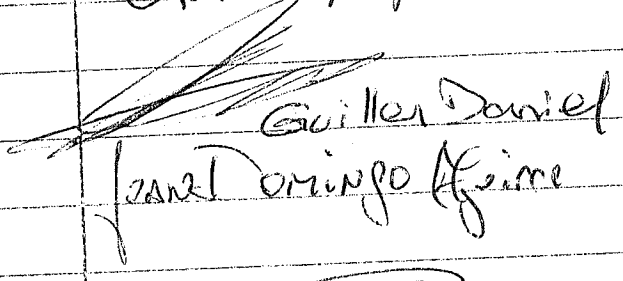 Guillen Daniel
Juan Domingo Aguirre